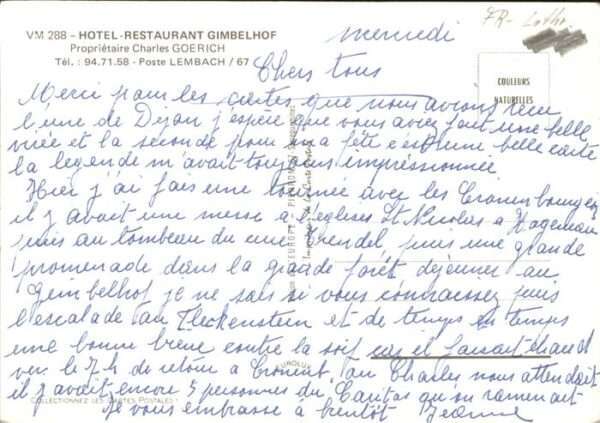 VM 288 - HOTEL-RESTAURANT GIMBELHOF
Propriétaire Charles GOERICH
Tél. : 94.71.58 - Poste LEMBACH / 67
FR-
mercredi
COULEURS
NATURELLES
Chers tous
Merci pour les cartes que nous avions reçu
l'une de Dijon j'espère que vous avez fait une belle
virée et la seconde pour ma fête c'est une belle carte
la legende m'avait toujours impressionnée.
Hier j'ai fais une tournée avec les
il y avait une messe a l'eglise St Nicolas a Haguenau
puis au tombeau du curé puis une grande
promenade dans la grande forêt dejeuner au
Geimbelhof je ne sais si vous connaissez puis
l'escalade au Fleckenstein et de temps en temps
une bonne biere contre la soif car il faisait chaud
vers le 7h de retour a ou Charles nous attendait
il y avait encore 5 personnes du Caritas qu'on ramenait
Je vous embrasse à bientôt Jeanne
COLLECTIONNEZ LES CARTES POSTALES